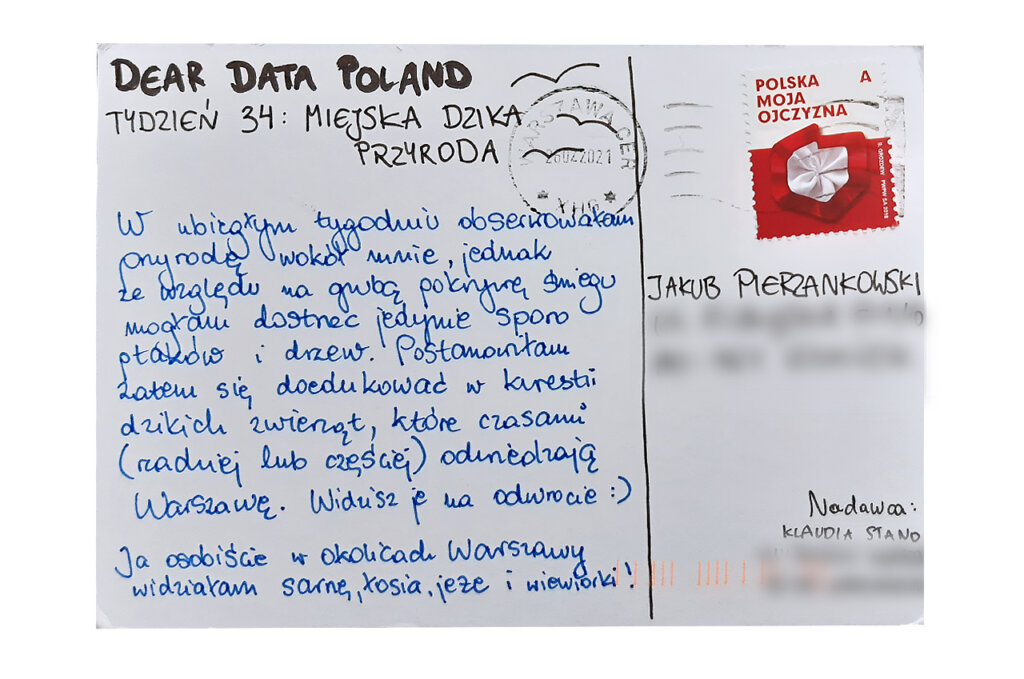 DEAR DATA POLAND
TYDZIEŃ 34: MIEJSKA DZIKA
PRZYRODA
W ubiegłym tygodniu obserwowałam
przyrodę wokół mnie, jednak
ze względu na grubą pokrywę śniegu
mogłam dostrzec jedynie sporo
ptaków i drzew. Postanowiłam
zatem się doedukować w kwestii
dzikich zwierząt, które czasami
(rzadziej lub częściej) odwiedzają
Warszawę. Widzisz je na odwrocie :)
Ja osobiście w okolicach Warszawy
widziałam sarnę, łosia, jeże i wiewiórki!
WARSZAWA CER
26022021
XH6
POLSKA A
MOJA
OJCZYZNA
PWPW SA 2018
JAKUB PIERZANKOWSKI
Nadawca:
KLAUDIA STANO